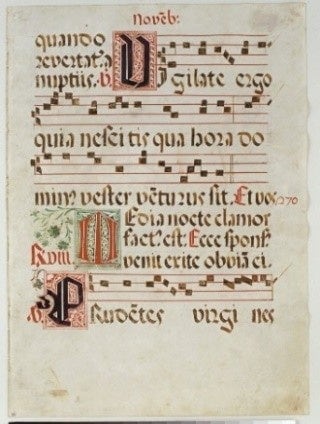 Novēb:
quando
revertat᷒ a
nuptiis. v. Vigilate ergo
quia nescitis qua hora do
min⁹ vester vēturus sit. Et vos
270
Media nocte clamor
fact⁹ est. Ecce spons⁹
Rviii. venit exite obviā ei.
v. Prudētes virgines